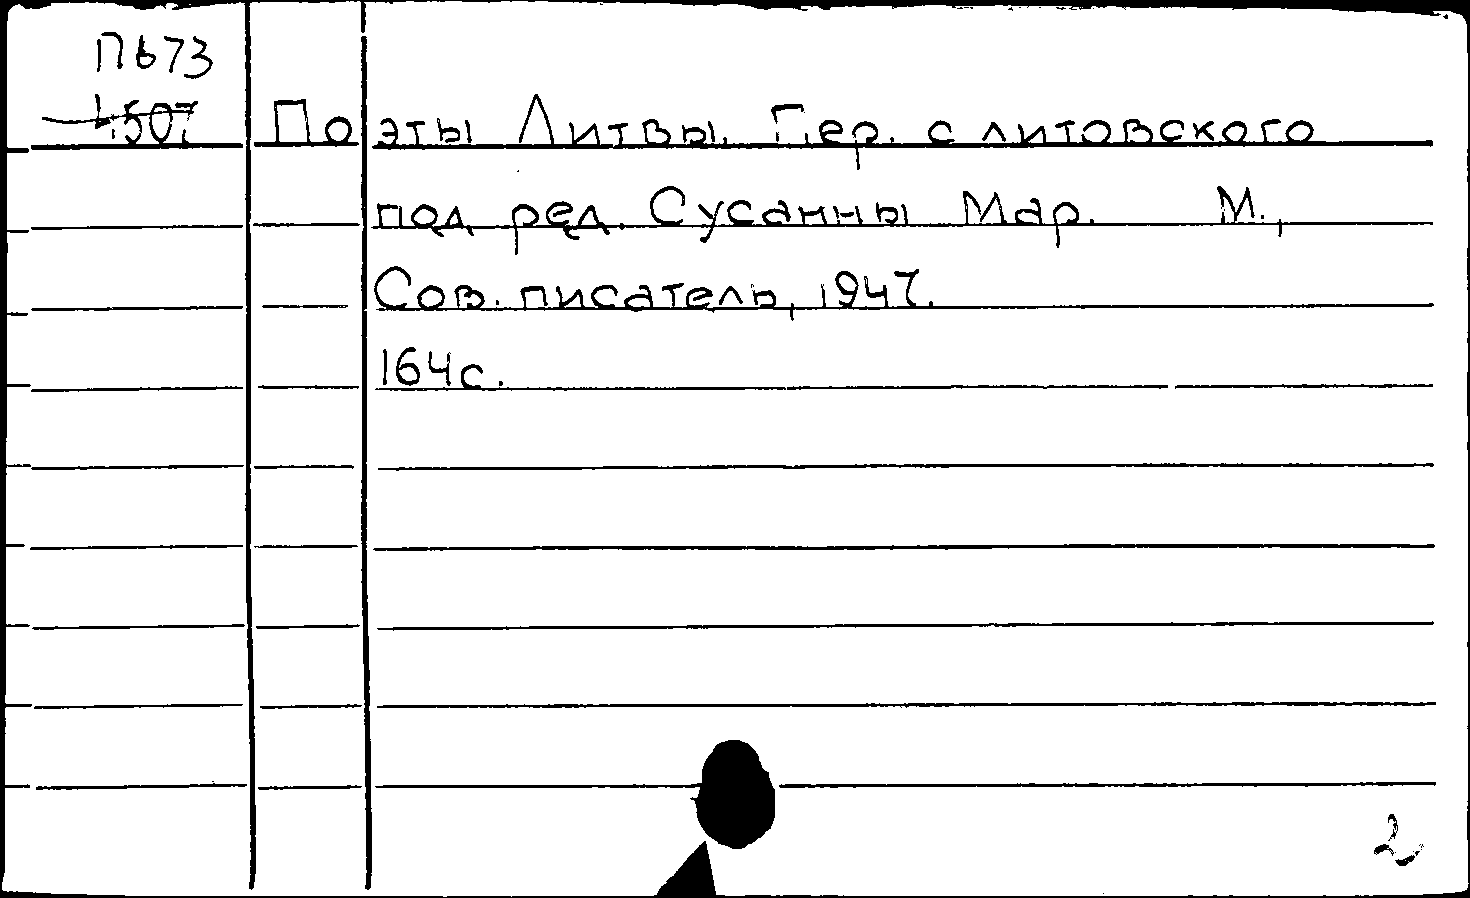 П673
4507
Поэты Литвы. Пер. с литовского
под ред. Сусанны Мар. М.,
Сов. писатель, 1947.
164с.
2